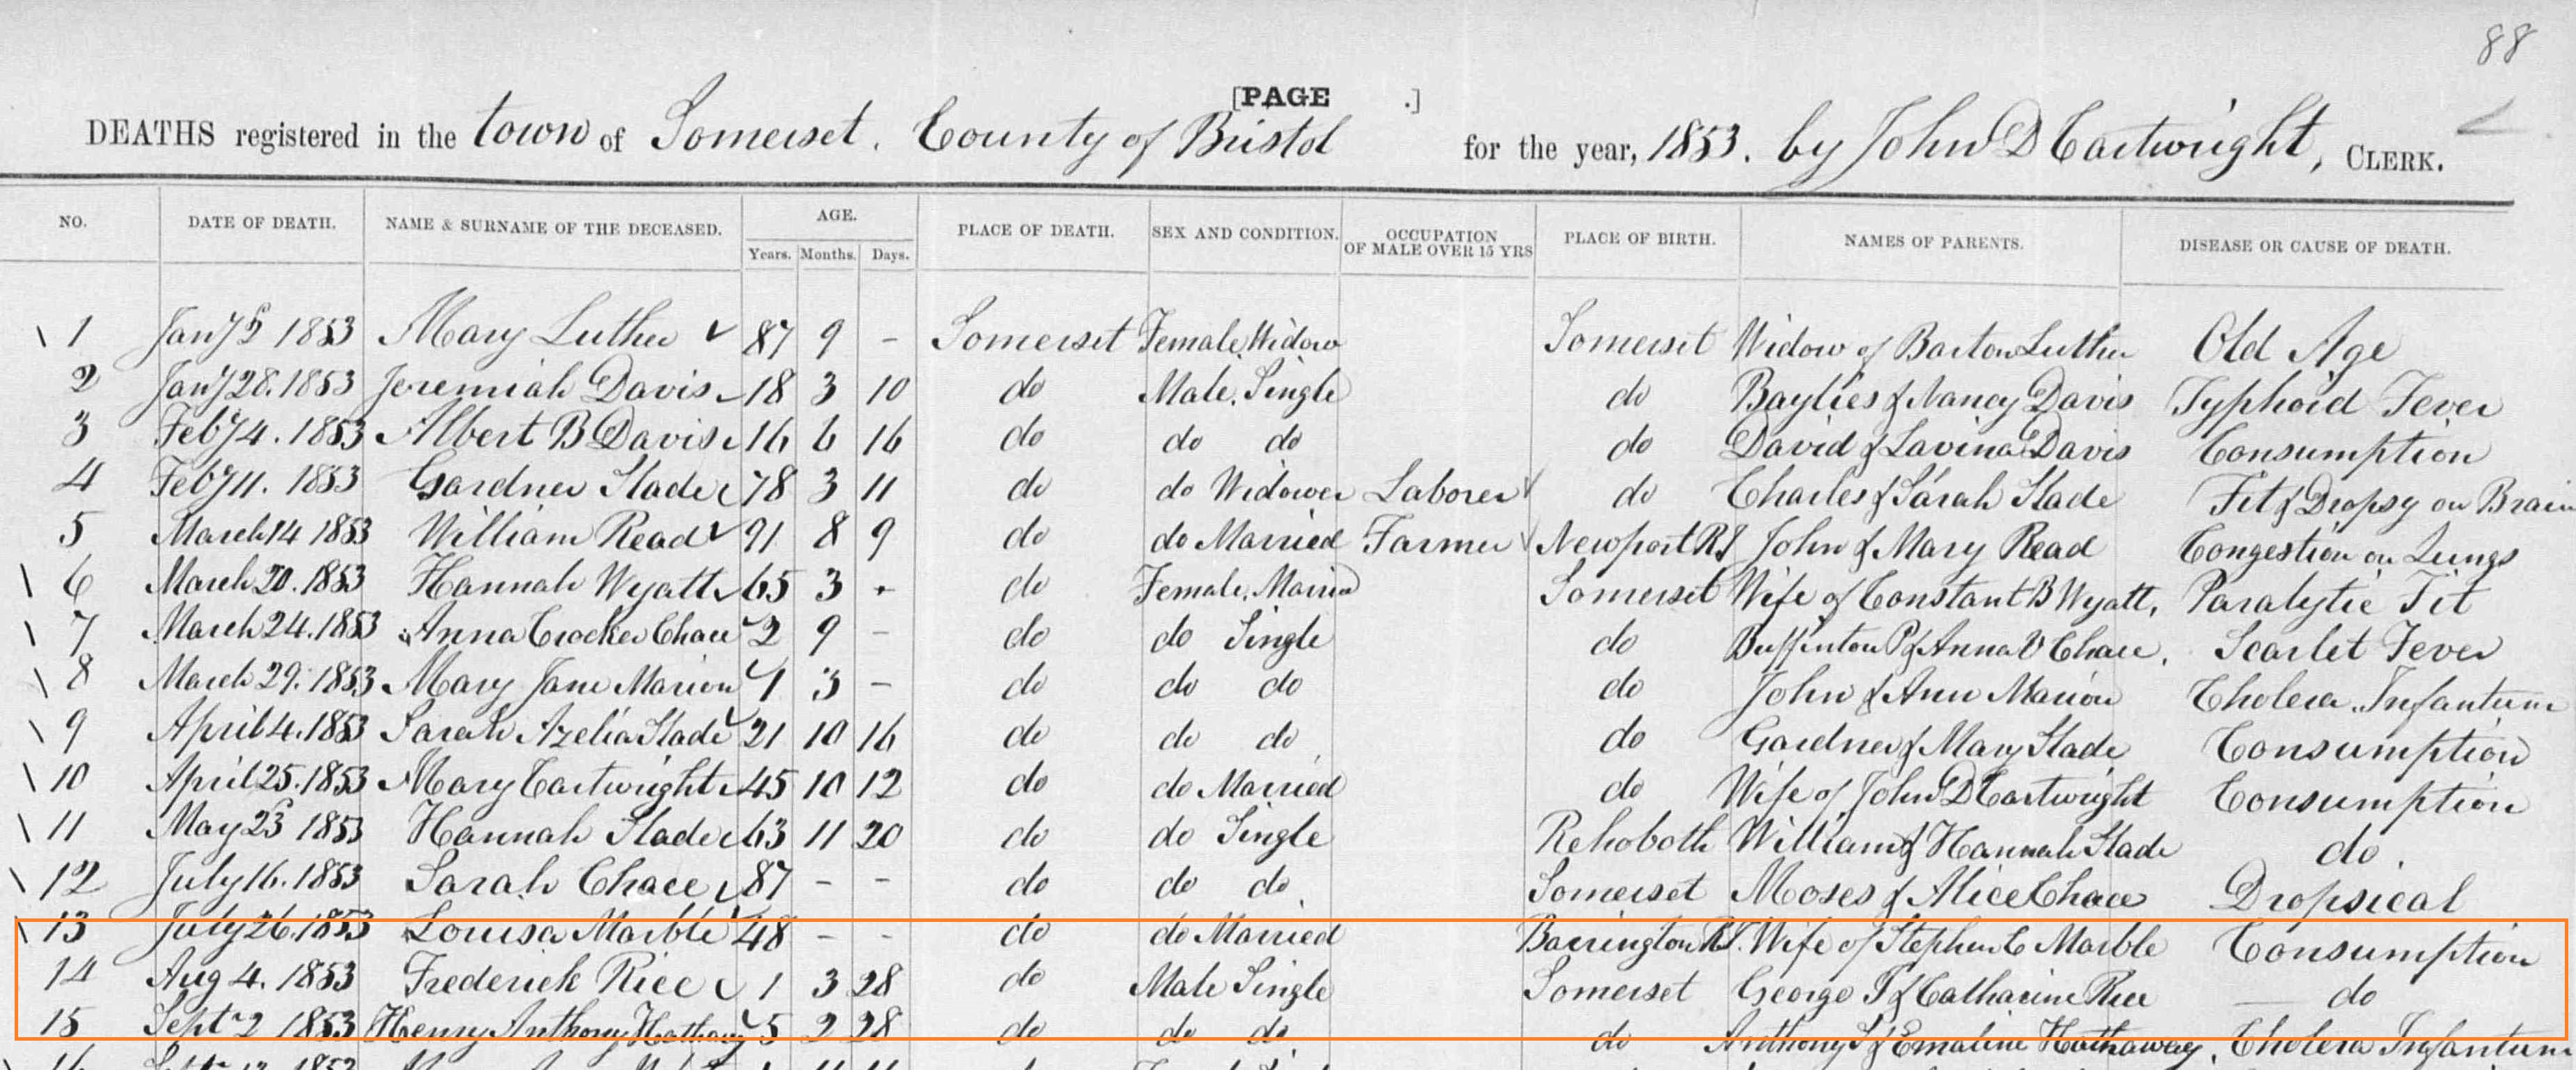 88
[PAGE .]
DEATHS registered in the town of Somerset. County of Bristol for the year, 1853. by John D Cartwright, CLERK.
NO. DATE OF DEATH. NAME & SURNAME OF THE DECEASED. AGE. PLACE OF DEATH. SEX AND CONDITION. OCCUPATION OF MALE OVER 15 YRS PLACE OF BIRTH. NAMES OF PARENTS. DISEASE OR CAUSE OF DEATH.
Years. Months. Days.
1 Jany 5 1853 Mary Luther 87 9 - Somerset Female, Widow Somerset Widow of Barton Luther Old Age
2 Jany 28. 1853 Jeremiah Davis 18 3 10 do Male, Single do Baylies & Nancy Davis Typhoid Fever
3 Feby 4. 1853 Albert B Davis 16 6 16 do do do do David & Lavina Davis Consumption
4 Feby 11. 1853 Gardner Slade 78 3 11 do do Widower Laborer do Charles & Sarah Slade Fit & Dropsy on Brain
5 March 14 1853 William Read 91 8 9 do do Married Farmer Newport R.I John & Mary Read Congestion on Lungs
6 March 20. 1853 Hannah Wyatt 65 3 - do Female, Married Somerset Wife of Constant B Wyatt, Paralytic Fit
7 March 24. 1853 Anna Crocker Chace 2 9 - do do Single do Buffinton P & Anna V Chace, Scarlet Fever
8 March 29. 1853 Mary Jane Marion 1 3 - do do do do John & Ann Marion Cholera Infantum
9 April 4. 1853 Sarah Azelia Slade 21 10 16 do do do do Gardner & Mary Slade Consumption
10 April 25. 1853 Mary Cartwright 45 10 12 do do Married do Wife of John D Cartwright Consumption
11 May 23 1853 Hannah Slade 63 11 20 do do Single Rehoboth William & Hannah Slade do.
12 July 16. 1853 Sarah Chace 87 - - do do do Somerset Moses & Alice Chace Dropsical
13 July 26. 1853 Louisa Marble 48 - - do do Married Barrington R.I. Wife of Stephen C Marble Consumption
14 Aug 4. 1853 Frederick Rice 1 3 28 do Male Single Somerset George T & Catharine Rice do
15 Sept 2 1853 Henry Anthony Hathaway 5 2 28 do do do do Anthony S & Emaline Hathaway, Cholera Infantum